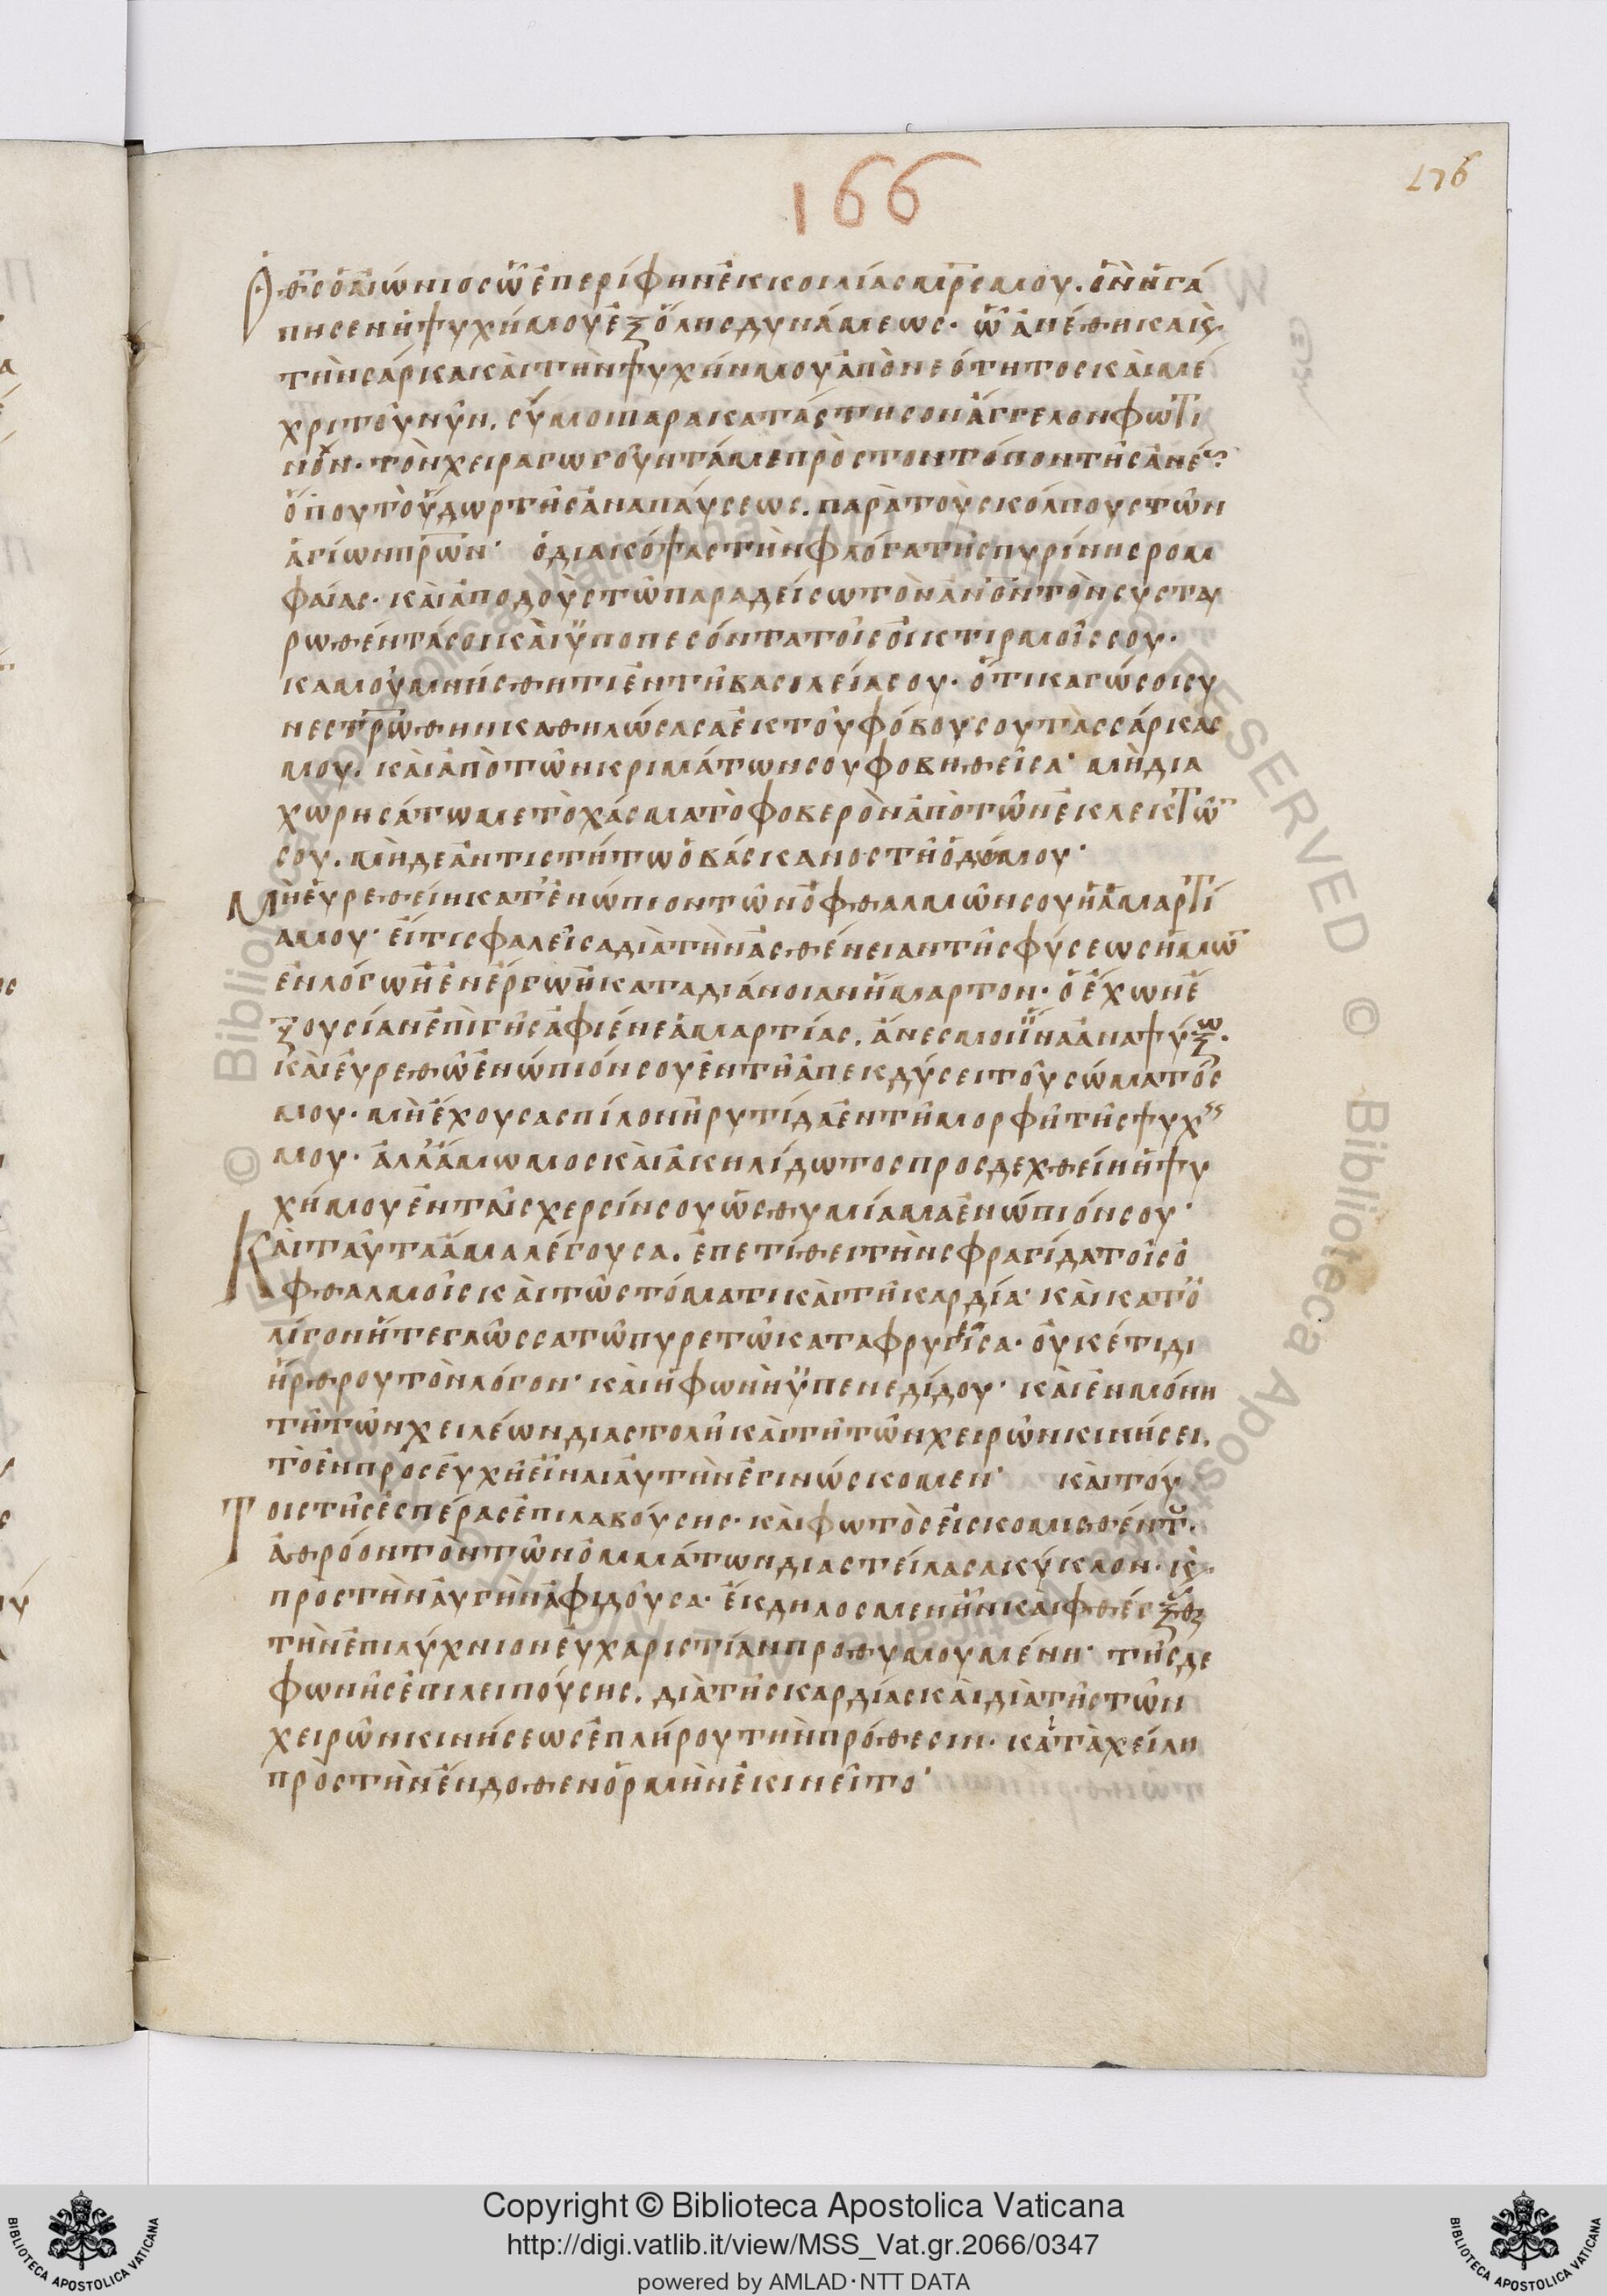 166
176
Ὁ θς ὁ αἰώνιος ᾧ ἐπερίφην ἐκ κοιλίας μρς μου. ὃν ἠγά
πησεν ἡ ψυχή μου ἐξ ὅλης δυνάμεως· ᾧ ἀνέθηκα ϗ
τὴν σάρκα καὶ τὴν ψυχήν μου ἀπὸ νεότητος καὶ μέ
χρι τοῦ νῦν. σύ μοι παρακατάστησον ἄγγελον φωτι
νόν· τὸν χειραγωγοῦντά με πρὸς τὸν τόπον τῆς ἀνέσ
ὅπου τὸ ὕδωρ τῆς ἀναπαύσεως. παρὰ τοὺς κόλπους τῶν
ἁγίων πρων· ὁ διακόψας τὴν φλόγα τῆς πυρίνης ρομ
φαίας· καὶ ἀποδοὺς τῷ παραδείσω τὸν ανον τὸν συσταυ
ρωθέντά σοι καὶ ὑποπεσόντα τοῖς οἰκτιρμοῖς σου·
κἀμοῦ μνήσθητι ἐν τῇ βασιλεία σου· ὅτι καγώ σοι συ
νεστρώθην καθηλώσασα ἐκ τοῦ φόβου σου τὰς σάρκας
μου. καὶ ἀπὸ τῶν κριμάτων σου φοβηθεῖσα· μὴ δια
χωρησάτω με τὸ χάσμα τὸ φοβερὸν ἀπὸ τῶν ἐκλεκτῶ
σου. μὴδε ἀντιστήτω ὁ βάσκανος τῇ ὁδῶ μου·
Μὴ εὑρεθείη κατ' ἐνώπιον τῶν ὀφθαλμῶν σου ἡ ἁμαρτί
α μου· εἴ τι σφαλεῖσα διὰ τὴν ἀσθένειαν τῆς φύσεως ἡμῶ
ἐν λόγω ἢ ἐν ἔργω ἢ κατα διάνοιαν ἥμαρτον· ὁ ἔχων ἐ
ξουσίαν ἐπὶ γῆς ἀφιέναι ἁμαρτίας, ἄνες μοι ἵνα ἀναψύξω·
καὶ εὑρεθῶ ἐνώπιόν σου ἐν τῇ ἀπεκδύσει τοῦ σώματός
μου· μὴ ἔχουσα σπίλον ἢ ρυτίδα ἐν τῇ μορφῇ τῆς ψυχῆς
μου· ἀλλ' ἄμωμος καὶ ἀκηλίδωτος προσδεχθείη ἡ ψυ
χή μου ἐν ταῖς χερσίν σου ὡς θυμίαμα ἐνώπιόν σου·
Καὶ ταῦτα ἅμα λέγουσα. ἐπετίθει τὴν σφραγίδα τοῖς ὀ
φθαλμοῖς καὶ τῷ στόματι καὶ τῇ καρδία· καὶ κατ' ὀ
λίγον ἥ τε γλῶσσα τῷ πυρετῷ καταφρυγεῖσα· οὐκέτι δι
ήρθρου τὸν λόγον· καὶ ἡ φωνὴ ὑπενεδίδου· καὶ ἐν μόνη
τῇ τῶν χειλέων διαστολῇ καὶ τῇ τῶν χειρῶν κινήσει.
τὸ ἐν προσευχῇ εἶναι αὐτὴν ἐγινώσκομεν· καὶ τού
τοις τῆς ἑσπέρας ἐπιλαβούσης· καὶ φωτὸς εἰσκομισθέντος·
ἀθρόον τὸν τῶν ὀμμάτων διαστείλασα κύκλον· ϗ
προς τὴν αὐγὴν ἀφιδοῦσα· ἔκδηλος μεν ἦν καὶ φθέγξασθαι
τὴν ἐπιλύχνιον εὐχαριστίαν προθυμουμένη· τῆς δε
φωνῆς ἐπιλειπούσης. διὰ τῆς καρδίας καὶ διὰ τῆς τῶν
χειρῶν κινήσεως ἐπλήρου τὴν πρόθεσιν· κἀὶ τὰ χείλη
πρὸς τὴν ἔνδοθεν ὁρμὴν ἐκινεῖτο·
Copyright © Biblioteca Apostolica Vaticana
http://digi.vatlib.it/view/MSS_Vat.gr.2066/0347
powered by AMLAD·NTT DATA